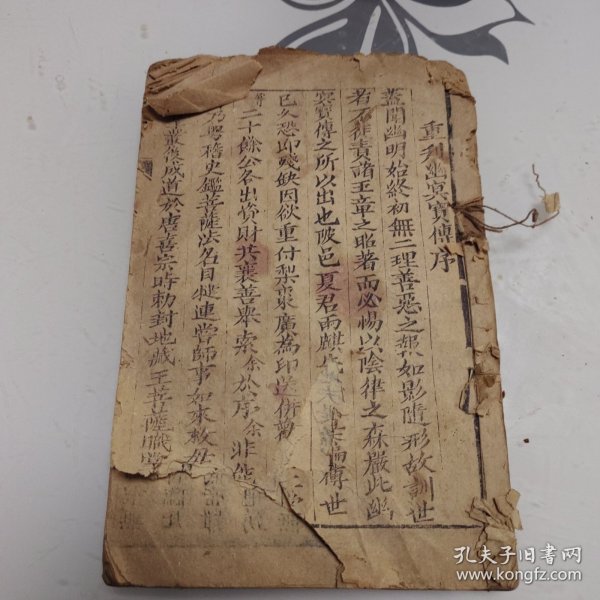 重刋幽冥寶傳序
蓋聞幽明始終初無二理善惡之報如影隨形故訓世
者不徒責諸王章之昭著而必惕以陰律之森嚴此幽
冥寶傳之所以出也陂邑夏君雨麒 傳世
已久恐印殘缺因欲重付梨棗廣為印送併募
二十餘公各出資財共襄善舉索余於序余非能
乃粵稽史鑑菩薩法名目犍連嘗師事如來救母
叢後成道於唐喜宗時勅封地藏王菩薩職
孔夫子旧书网
www.kongfz.com